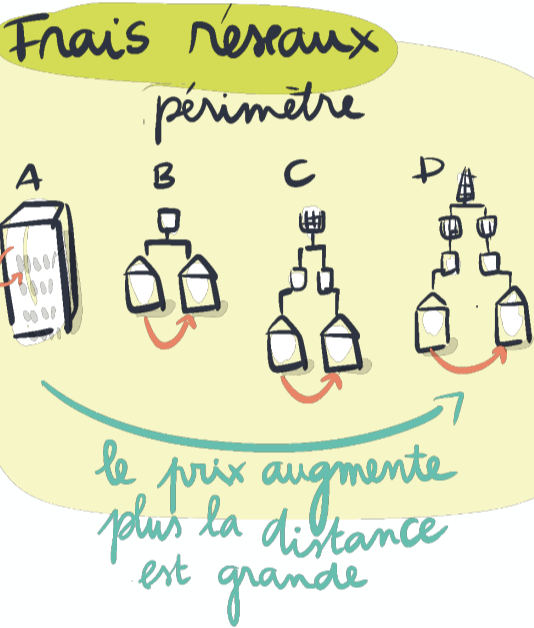 Frais réseaux
périmètre
A B C D
le prix augmente
plus la distance
est grande